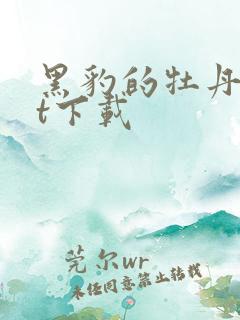 黑豹的牡丹
t下載
莞尔wr
未经同意禁止转载